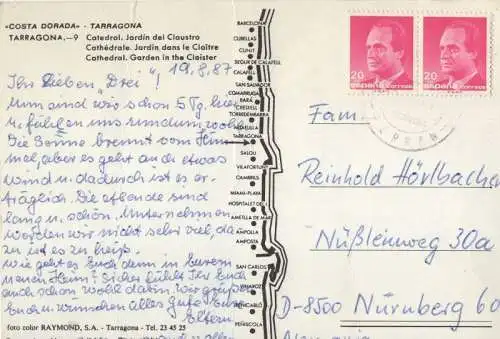 «COSTA DORADA» - TARRAGONA
TARRAGONA.-9 Catedral. Jardín del Claustro
Cathédrale. Jardin dans le Cloître
Cathedral. Garden in the Cloister
19.8.87
Ihr lieben "Drei",
nun sind wir schon 5 Tg. hier
fühlen uns rundum wohl.
Die Sonne brennt vom Himmel
mal, aber es geht auch etwas
Wind u. dadurch ist es er-
träglich. Die Abende sind
lang u. schön. Unternehmen
werden wir nicht sehr viel, da-
zu ist es zu heiß.
Wie geht es Euch denn in Eurem
neuen Heim? Sicher fühlt Ihr Euch
auch schon wohl darin. Wir grüßen
Euch u. wünschen alles Gute Eure
Eltern
BARCELONA
CUBELLAS
CUNIT
SEGUR DE CALAFELL
CALAFELL
SAN SALVADOR
COMARRUGA
BARÁ
CREIXELL
TORREDEMBARRA
ALTAFULLA
TARRAGONA
SALOU
VILAFORTUNY
CAMBRILS
MIAMI-PLAYA
HOSPITALET DE
AMETLLA DE MAR
AMPOLLA
AMPOSTA
SAN CARLOS
VINAROZ
BENICARLÓ
PEÑISCOLA
20
ESPAÑA CORREOS
20
ESPAÑA CORREOS
Fam.
Reinhold Hörlbacher
Nüßleinweg 30a
D-8500 Nürnberg 60
foto color RAYMOND, S.A. - Tarragona - Tel. 23 45 25